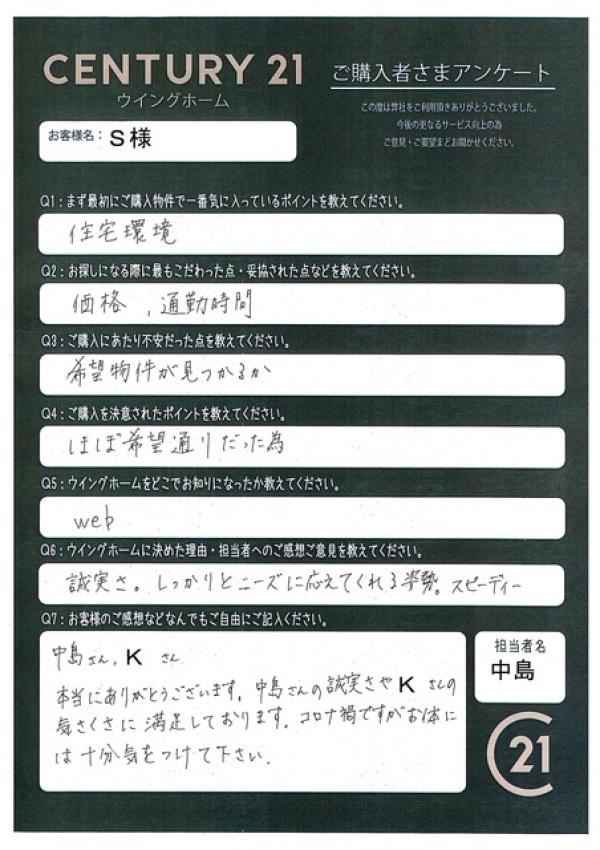 CENTURY 21
ウイングホーム
ご購入者さまアンケート
この度は弊社をご利用頂きありがとうございました。
今後の更なるサービス向上の為
ご意見・ご要望をお聞かせください。
お客様名: S様
Q1:まず最初にご購入物件で一番気に入っているポイントを教えてください。
住宅環境
Q2:お探しになる際に最もこだわった点・妥協された点などを教えてください。
価格,通勤時間
Q3:ご購入にあたり不安だった点を教えてください。
希望物件が見つかるか
Q4:ご購入を決意されたポイントを教えてください。
ほぼ希望通りだった為
Q5:ウイングホームをどこでお知りになったか教えてください。
web
Q6:ウイングホームに決めた理由・担当者へのご感想ご意見を教えてください。
誠実さ。しっかりとニーズに応えてくれる姿勢。スピーディー
Q7:お客様のご感想などなんでもご自由にご記入ください。
中島さん, K さん
本当にありがとうございます。中島さんの誠実さや K さんの
気さくさに満足しております。コロナ禍ですがお体に
は十分気をつけて下さい。
担当者名
中島
C21